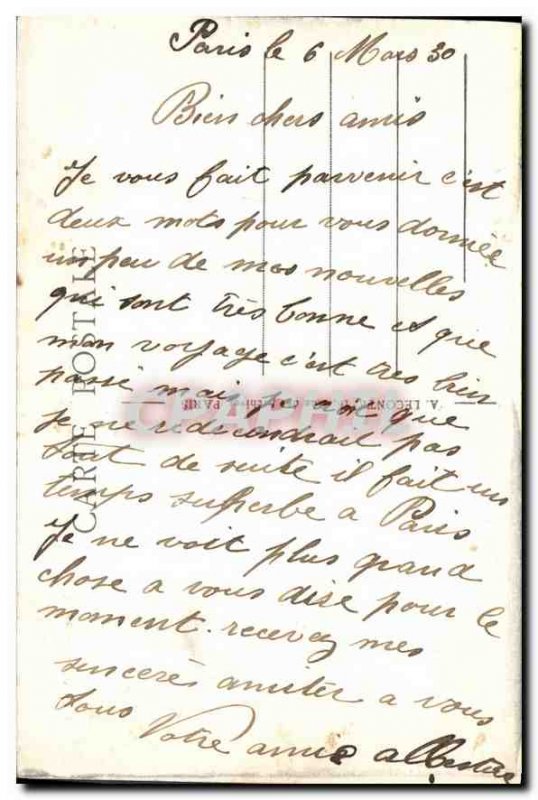 Paris le 6 Mars 30
Bien chers amis
Je vous fait parvenir c'est
deux mots pour vous donnée
un peu de mes nouvelles
qui sont très bonne et que
mon voyage c'est très bien
passé mais je que
je ne pas
tout de suite il fait un
temps superbe a Paris
Je ne voit plus grand
chose a vous dire pour le
moment. recevez mes
sincères amitér a vous
tous
Votre amie
CARTE POSTALE
A. LECONTE PARIS